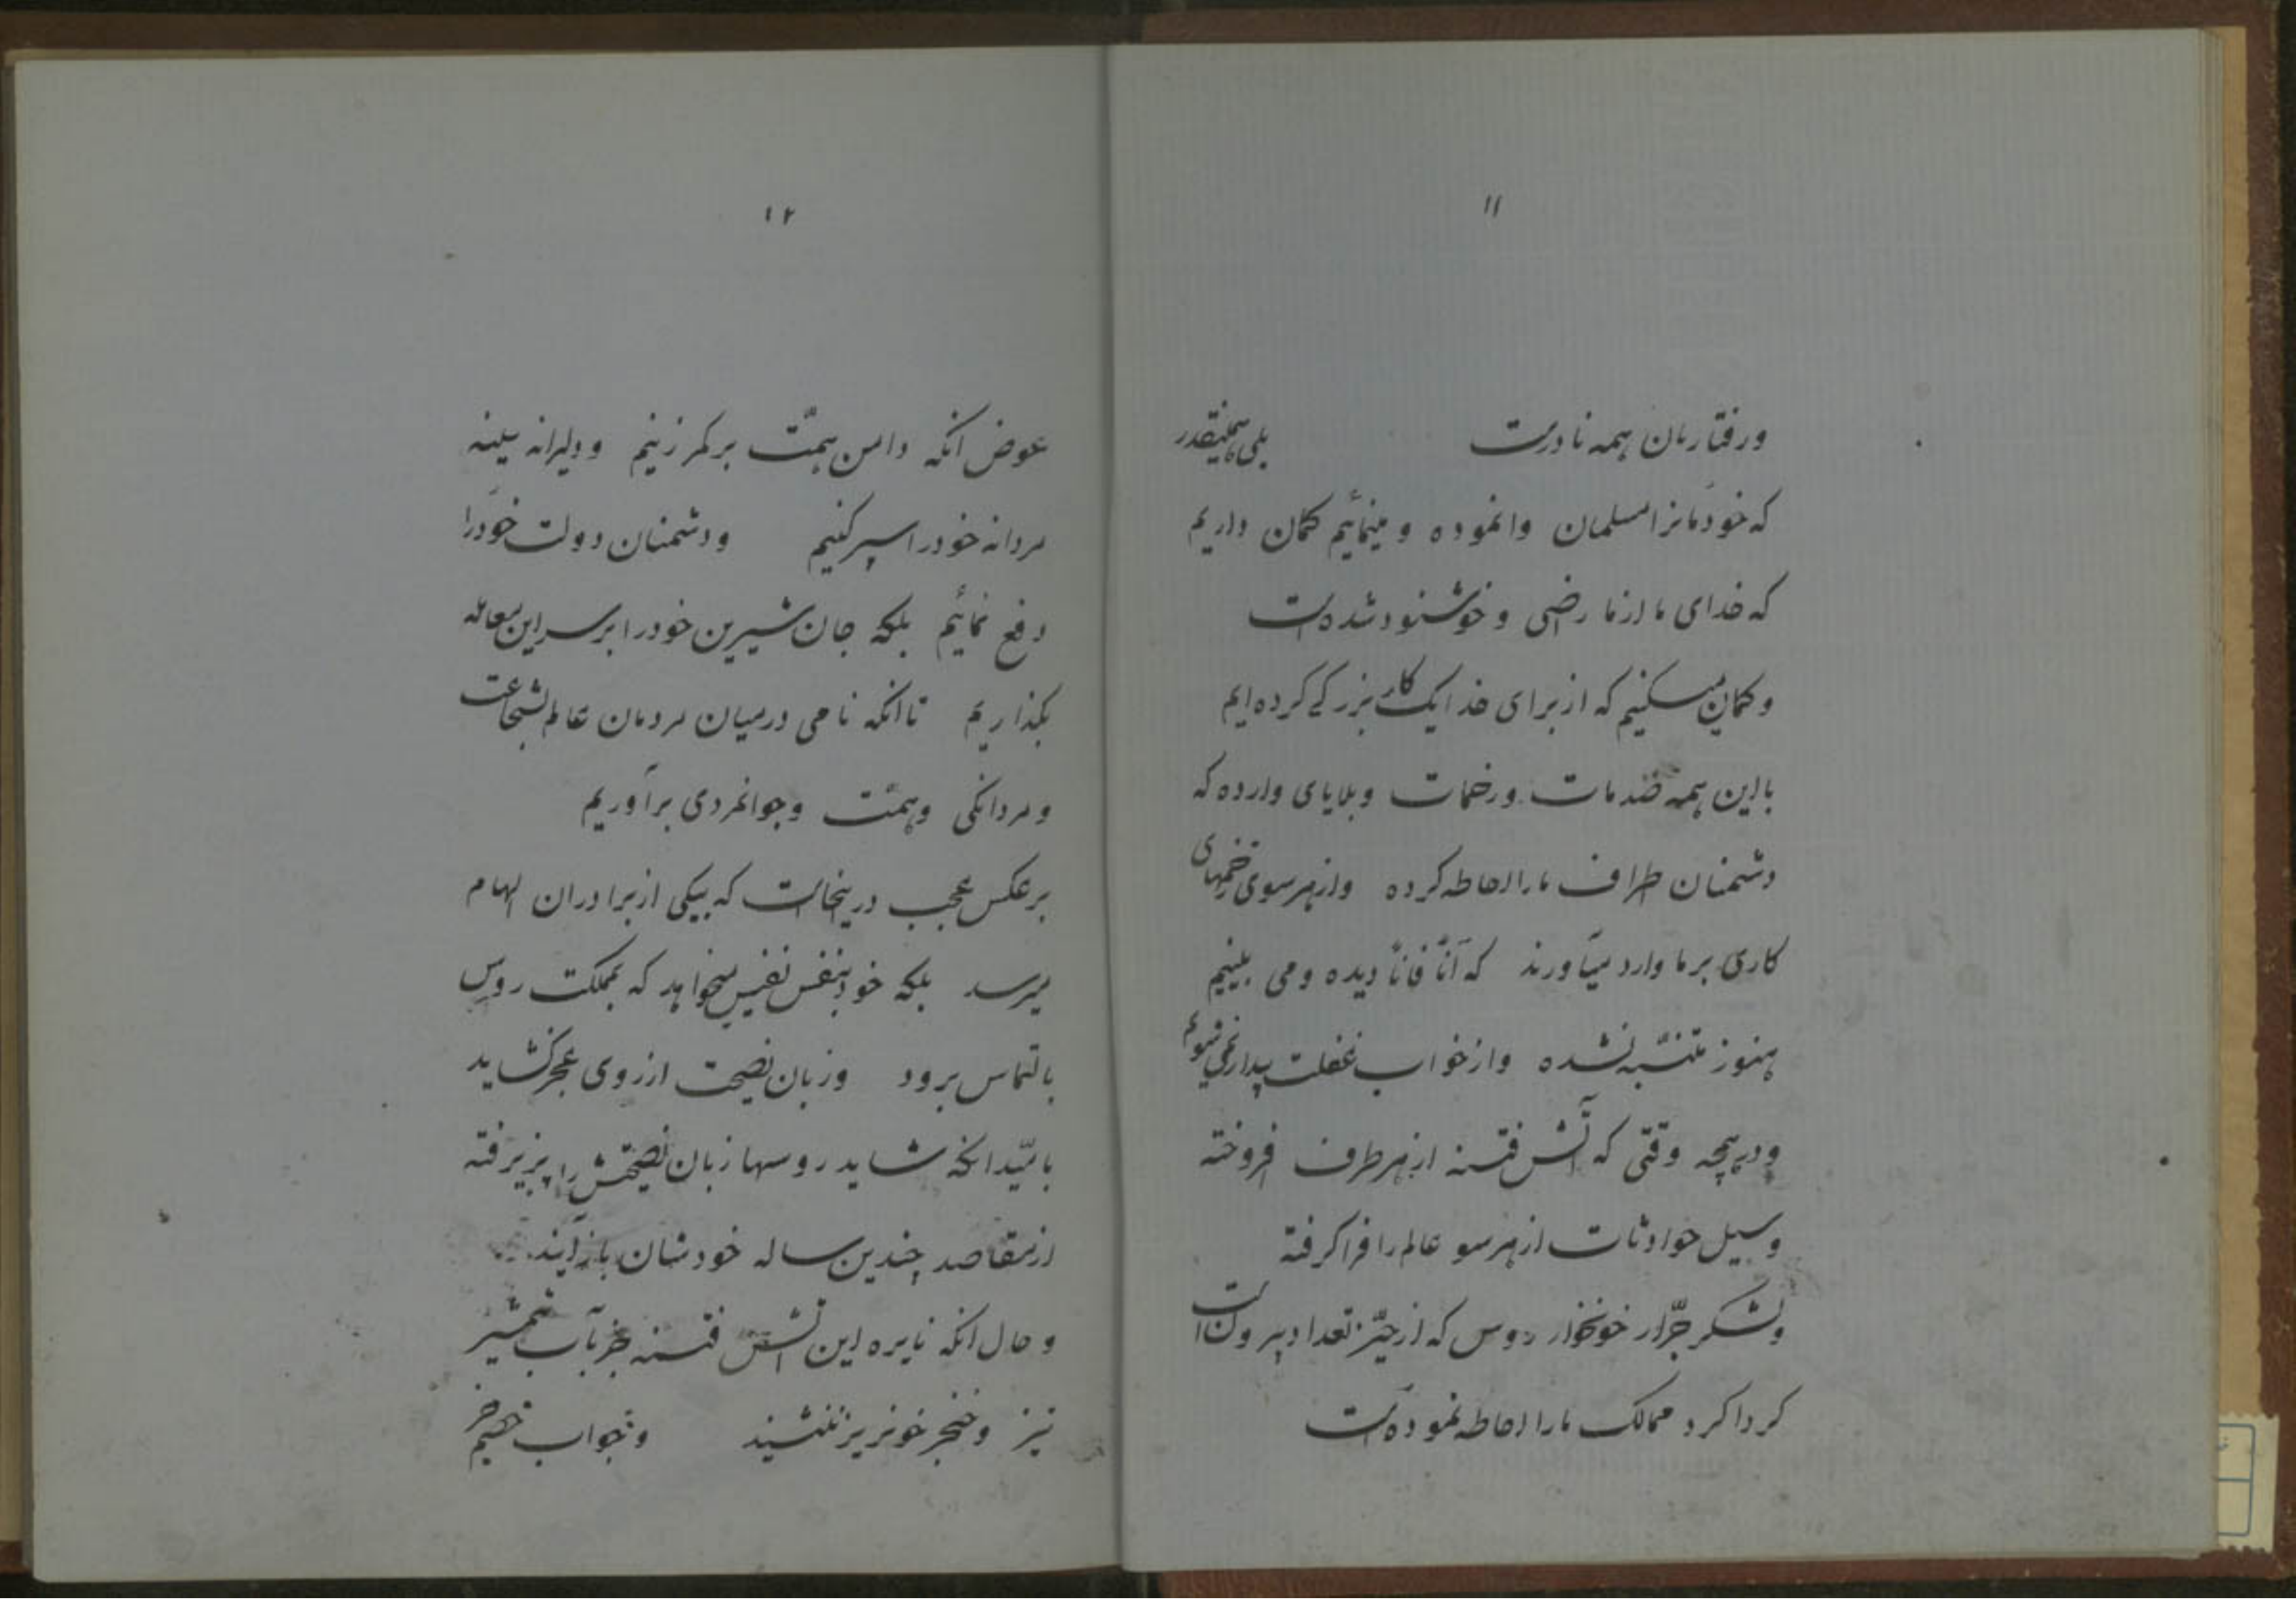 ۱۱
ورفتارمان همه نادرست بلی همینقدر
که خودمانرا مسلمان وانموده و مینمائیم کمان داریم
که خدای ما از ما راضی و خوشنود شده است
و کمان میکنیم که از برای خدا یک کار بزرکی کرده ایم
با این همه صدمات وزخمات وبلایای وارده که
دشمنان طراف مارا احاطه کرده واز هر سوی زخمهای
کاری بر ما وارد میآورند که آناً فاناً دیده و می بینیم
هنوز متنبّه نشده واز خواب غفلت بیدار نمی شویم
ودر همچه وقتی که آتش فتنه از هر طرف افروخته
وسیل حوادثات از هر سو عالم را فرا کرفته
ولشکر جرّار خونخوار روس که از حیّز تعداد بیرون است
کرداکرد ممالک مارا احاطه نموده است
۱۲
عوض انکه دامن همّت بر کمر زنیم و دلیرانه سینه
مردانه خودرا سپر کنیم ودشمنان دولت خودرا
دفع نمائیم بلکه جان شیرین خودرا بر سر این معامله
بکذاریم تا انکه نامی در میان مردمان عالم بشجاعت
ومردانکی وهمّت وجوانمردی برآوریم
بر عکس عجب در اینجاست که بیکی از برادران الهام
میرسد بلکه خود بنفس نفیس میخواهد که بمملکت روس
بالتماس برود وزبان نصیحت از روی عجز کشاید
بامّید انکه شاید روسها زبان نصیحتش را پزیرفته
از مقاصد چندین ساله خودشان باز آیند
وحال انکه نایره این آتش فتنه جز بآب شمشیر
تیز وخنجر خونریز ننشیند وجواب خصم جز